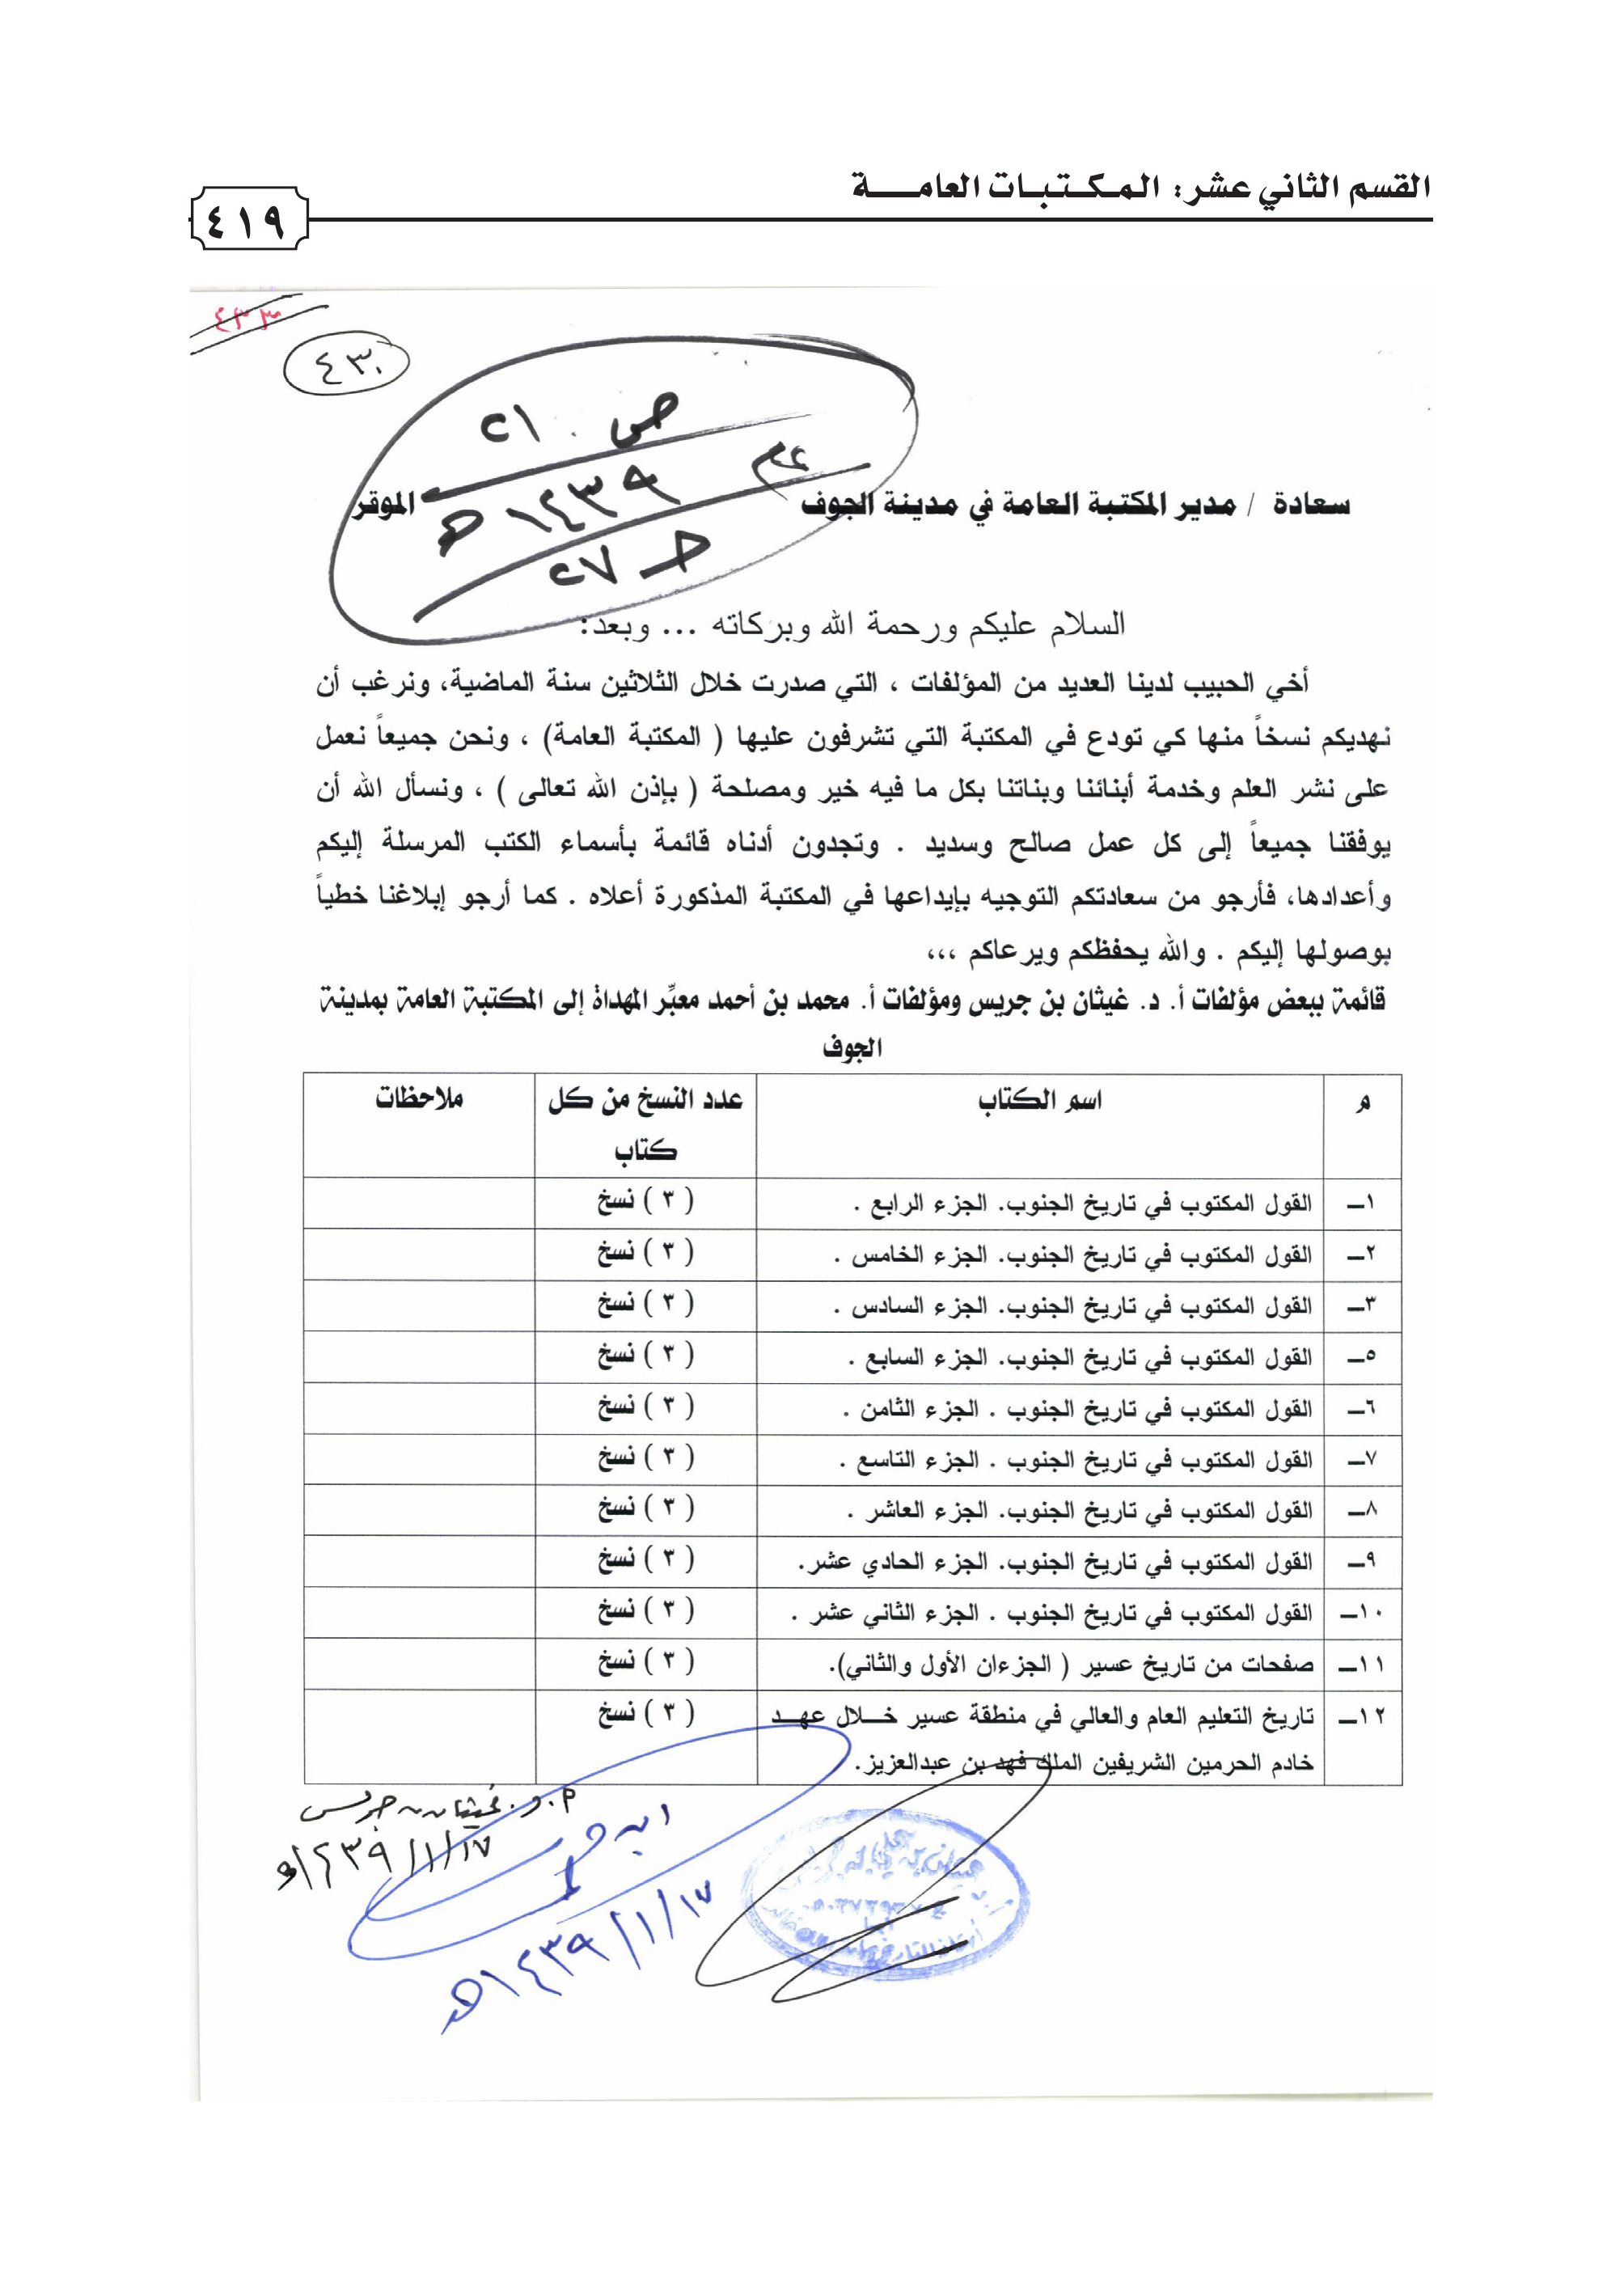 القسم الثاني عشر: المكتبات العامة
٤١٩
٤٣٣
٤٣٠
ص ٢١
١٤٣٩هـ
حـ ٢٧
سعادة / مدير المكتبة العامة في مدينة الجوف الموقر
السلام عليكم ورحمة الله وبركاته ... وبعد:
أخي الحبيب لدينا العديد من المؤلفات ، التي صدرت خلال الثلاثين سنة الماضية، ونرغب أن
نهديكم نسخاً منها كي تودع في المكتبة التي تشرفون عليها ( المكتبة العامة) ، ونحن جميعاً نعمل
على نشر العلم وخدمة أبنائنا وبناتنا بكل ما فيه خير ومصلحة ( بإذن الله تعالى ) ، ونسأل الله أن
يوفقنا جميعاً إلى كل عمل صالح وسديد . وتجدون أدناه قائمة بأسماء الكتب المرسلة إليكم
وأعدادها، فأرجو من سعادتكم التوجيه بإيداعها في المكتبة المذكورة أعلاه . كما أرجو إبلاغنا خطياً
بوصولها إليكم . والله يحفظكم ويرعاكم ،،،
قائمة ببعض مؤلفات أ. د. غيثان بن جريس ومؤلفات أ. محمد بن أحمد معبِّر المهداة إلى المكتبة العامة بمدينة
الجوف
م اسم الكتاب عدد النسخ من كل كتاب ملاحظات
١ـ القول المكتوب في تاريخ الجنوب. الجزء الرابع . ( ٣ ) نسخ
٢ـ القول المكتوب في تاريخ الجنوب. الجزء الخامس . ( ٣ ) نسخ
٣ـ القول المكتوب في تاريخ الجنوب. الجزء السادس . ( ٣ ) نسخ
٥ـ القول المكتوب في تاريخ الجنوب. الجزء السابع . ( ٣ ) نسخ
٦ـ القول المكتوب في تاريخ الجنوب . الجزء الثامن . ( ٣ ) نسخ
٧ـ القول المكتوب في تاريخ الجنوب . الجزء التاسع . ( ٣ ) نسخ
٨ـ القول المكتوب في تاريخ الجنوب. الجزء العاشر . ( ٣ ) نسخ
٩ـ القول المكتوب في تاريخ الجنوب. الجزء الحادي عشر. ( ٣ ) نسخ
١٠ـ القول المكتوب في تاريخ الجنوب . الجزء الثاني عشر . ( ٣ ) نسخ
١١ـ صفحات من تاريخ عسير ( الجزءان الأول والثاني). ( ٣ ) نسخ
١٢ـ تاريخ التعليم العام والعالي في منطقة عسير خلال عهد ( ٣ ) نسخ
خادم الحرمين الشريفين الملك فهد بن عبدالعزيز.
أ.د. غيثان بن جريس
١٧/١/١٤٣٩هـ
ابن جريس
١٧/١/١٤٣٩هـ